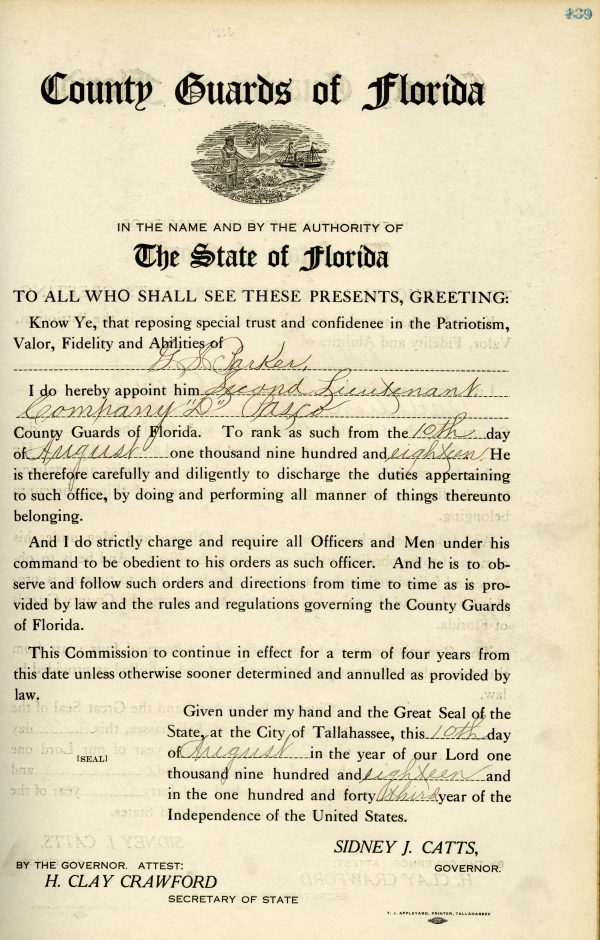 439
County Guards of Florida
IN GOD WE TRUST
IN THE NAME AND BY THE AUTHORITY OF
The State of Florida
TO ALL WHO SHALL SEE THESE PRESENTS, GREETING:
Know Ye, that reposing special trust and confidenee in the Patriotism,
Valor, Fidelity and Abilities of
G. S. Parker.
I do hereby appoint him Second Lieutenant
Company "D" Pasco
County Guards of Florida. To rank as such from the 10th day
of August one thousand nine hundred and eighteen He
is therefore carefully and diligently to discharge the duties appertaining
to such office, by doing and performing all manner of things thereunto
belonging.
And I do strictly charge and require all Officers and Men under his
command to be obedient to his orders as such officer. And he is to ob-
serve and follow such orders and directions from time to time as is pro-
vided by law and the rules and regulations governing the County Guards
of Florida.
This Commission to continue in effect for a term of four years from
this date unless otherwise sooner determined and annulled as provided by
law.
Given under my hand and the Great Seal of the
State, at the City of Tallahassee, this 10th day
of August in the year of our Lord one
[SEAL]
thousand nine hundred and eighteen and
in the one hundred and forty third year of the
Independence of the United States.
SIDNEY J. CATTS,
GOVERNOR.
BY THE GOVERNOR. ATTEST:
H. CLAY CRAWFORD
SECRETARY OF STATE
T. J. APPLEYARD, PRINTER, TALLAHASSEE